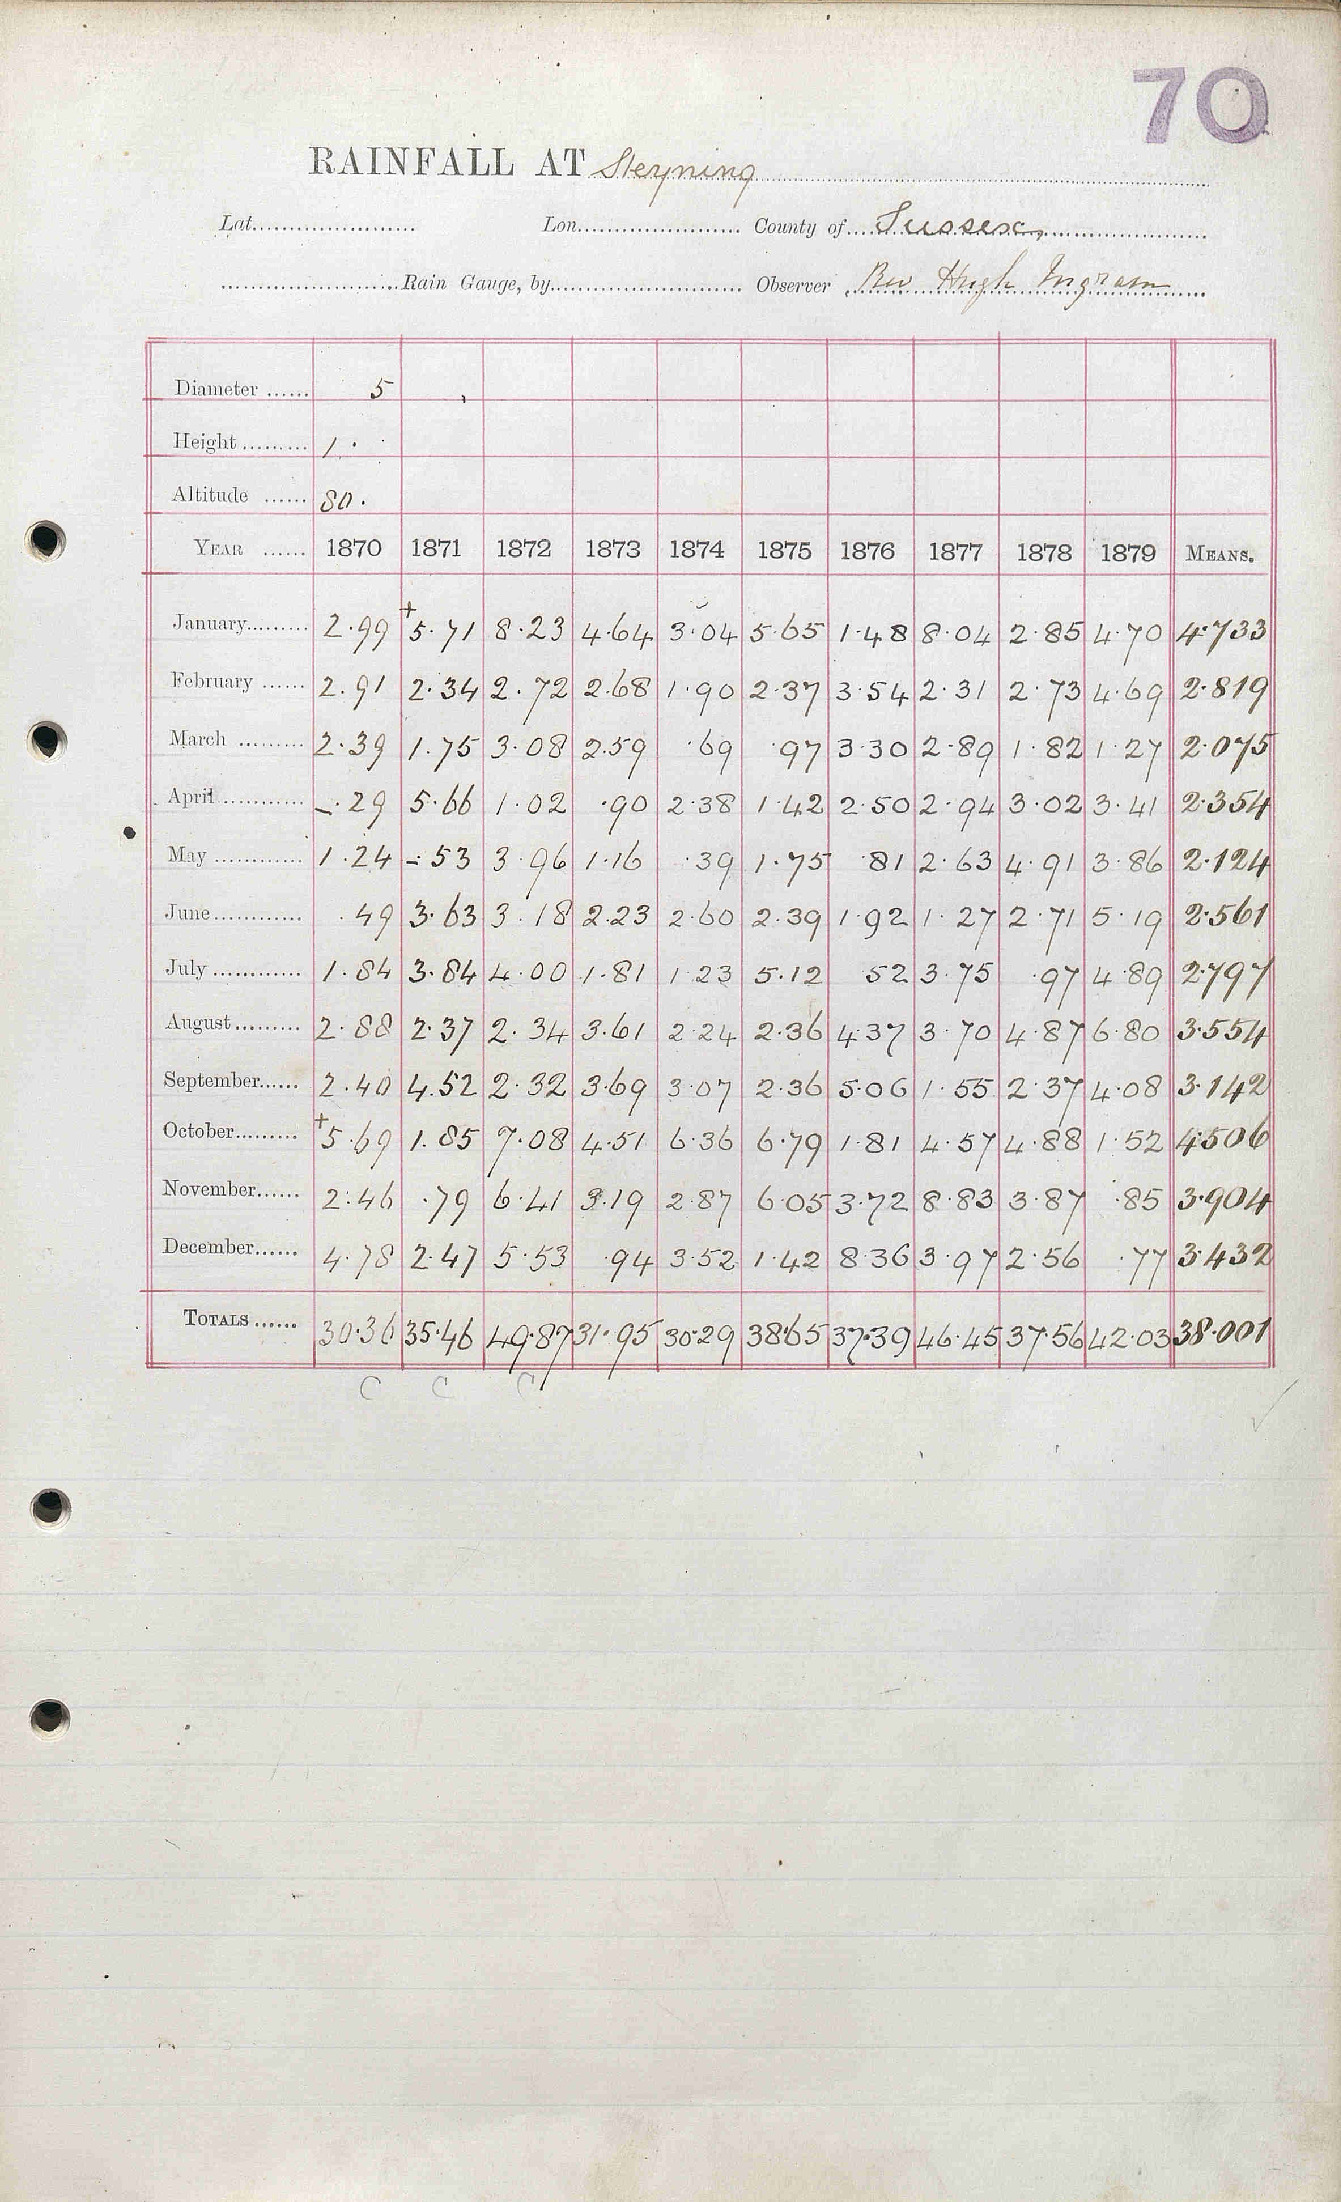 70
RAINFALL AT Steyning
Lat. Lon. County of Sussex
Rain Gauge, by Observer Rev Hugh Ingram
Diameter 5
Height 1.
Altitude 80.
YEAR 1870 1871 1872 1873 1874 1875 1876 1877 1878 1879 MEANS.
January 2.99 +5.71 8.23 4.64 3.04 5.65 1.48 8.04 2.85 4.70 4.733
February 2.91 2.34 2.72 2.68 1.90 2.37 3.54 2.31 2.73 4.69 2.819
March 2.39 1.75 3.08 2.59 .69 .97 3.30 2.89 1.82 1.27 2.075
April -.29 5.66 1.02 .90 2.38 1.42 2.50 2.94 3.02 3.41 2.354
May 1.24 -.53 3.96 1.16 .39 1.75 .81 2.63 4.91 3.86 2.124
June .49 3.63 3.18 2.23 2.60 2.39 1.92 1.27 2.71 5.19 2.561
July 1.84 3.84 4.00 1.81 1.23 5.12 .52 3.75 .97 4.89 2.797
August 2.88 2.37 2.34 3.61 2.24 2.36 4.37 3.70 4.87 6.80 3.554
September 2.40 4.52 2.32 3.69 3.07 2.36 5.06 1.55 2.37 4.08 3.142
October +5.69 1.85 7.08 4.51 6.36 6.79 1.81 4.57 4.88 1.52 4.506
November 2.46 .79 6.41 3.19 2.87 6.05 3.72 8.83 3.87 .85 3.904
December 4.78 2.47 5.53 .94 3.52 1.42 8.36 3.97 2.56 .77 3.432
TOTALS 30.36 35.46 49.87 31.95 30.29 38.65 37.39 46.45 37.56 42.03 38.001
C C C